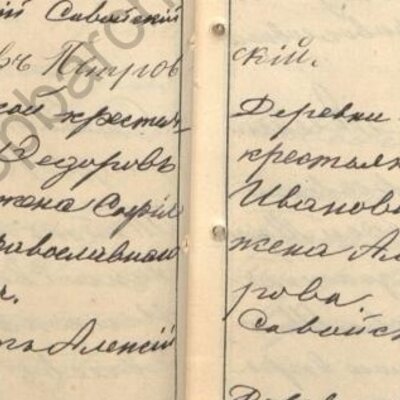 ій Савойскій
въ Петров
кой крестья
Ѳедоровъ
жена Софія
равославнаго
Алексій
скій.
Деревни
крестьян
Иванов
жена Ал
рова.
Савойск